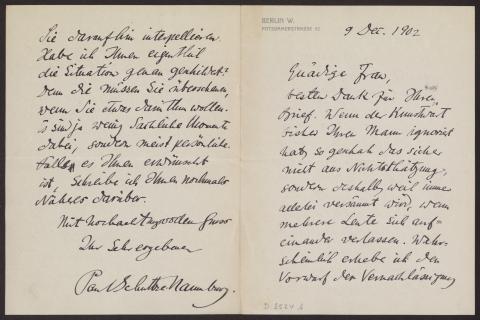 BERLIN W.
POTSDAMERSTRASSE
9 Dec. 1902
Gnädige Frau,
besten Dank für Ihren
Brief. Wenn der Kunstwart
bisher Ihren Mann ignoriert
hat, so geschah das sicher
nicht aus Nichtachtung,
sondern deshalb, weil immer
allerlei versäumt wird, wenn
mehrere Leute sich auf-
einander verlassen. Wahr-
scheinlich erhebe ich den
Vorwurf der Vernachlässigung
Sie daraufhin interpellieren.
Habe ich Ihnen eigentlich
die Situation genau geschildert?
Denn die müssen Sie überschauen,
wenn Sie etwas darin thun wollen.
Es sind ja wenig sachliche Momente
dabei, sondern meist persönliche.
Falls es Ihnen erwünscht
ist, schreibe ich Ihnen nochmals
Näheres darüber.
Mit hochachtungsvollem Gruss
Ihr sehr ergebener
Paul Schultze-Naumburg.